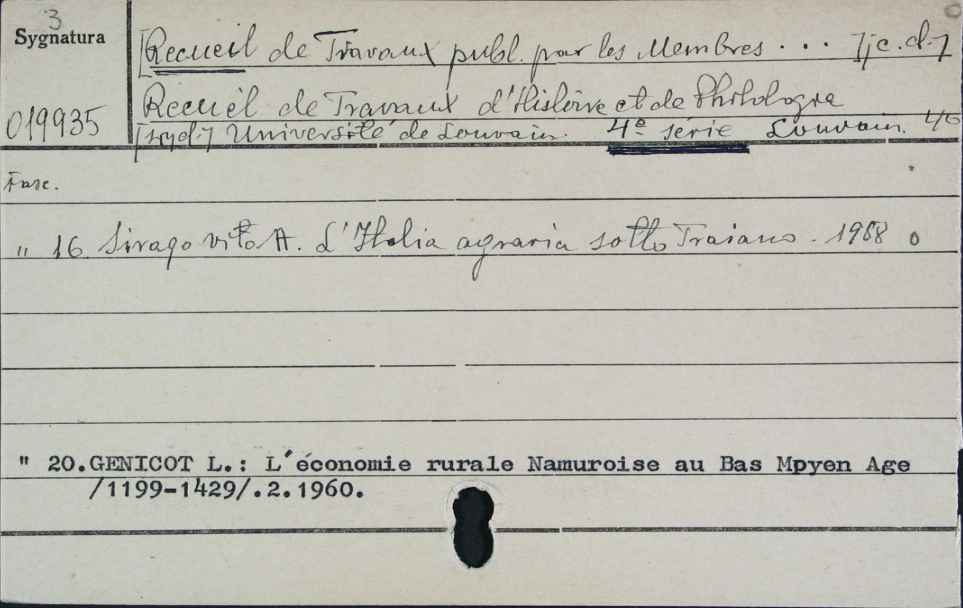 3
Sygnatura
019935
[Recueil de Travaux publ. par les Membres ... ] [c.d.]
Recueil de Travaux d'Histoire et de Philologie
[wyd.] Université de Louvain. 4e série Louvain. 4/6
Fasc.
" 16 Sirago Vito A. L'Italia agraria sotto Traiano. 1958 o
" 20.GENICOT L.: L'économie rurale Namuroise au Bas Mpyen Age
/1199-1429/.2.1960.